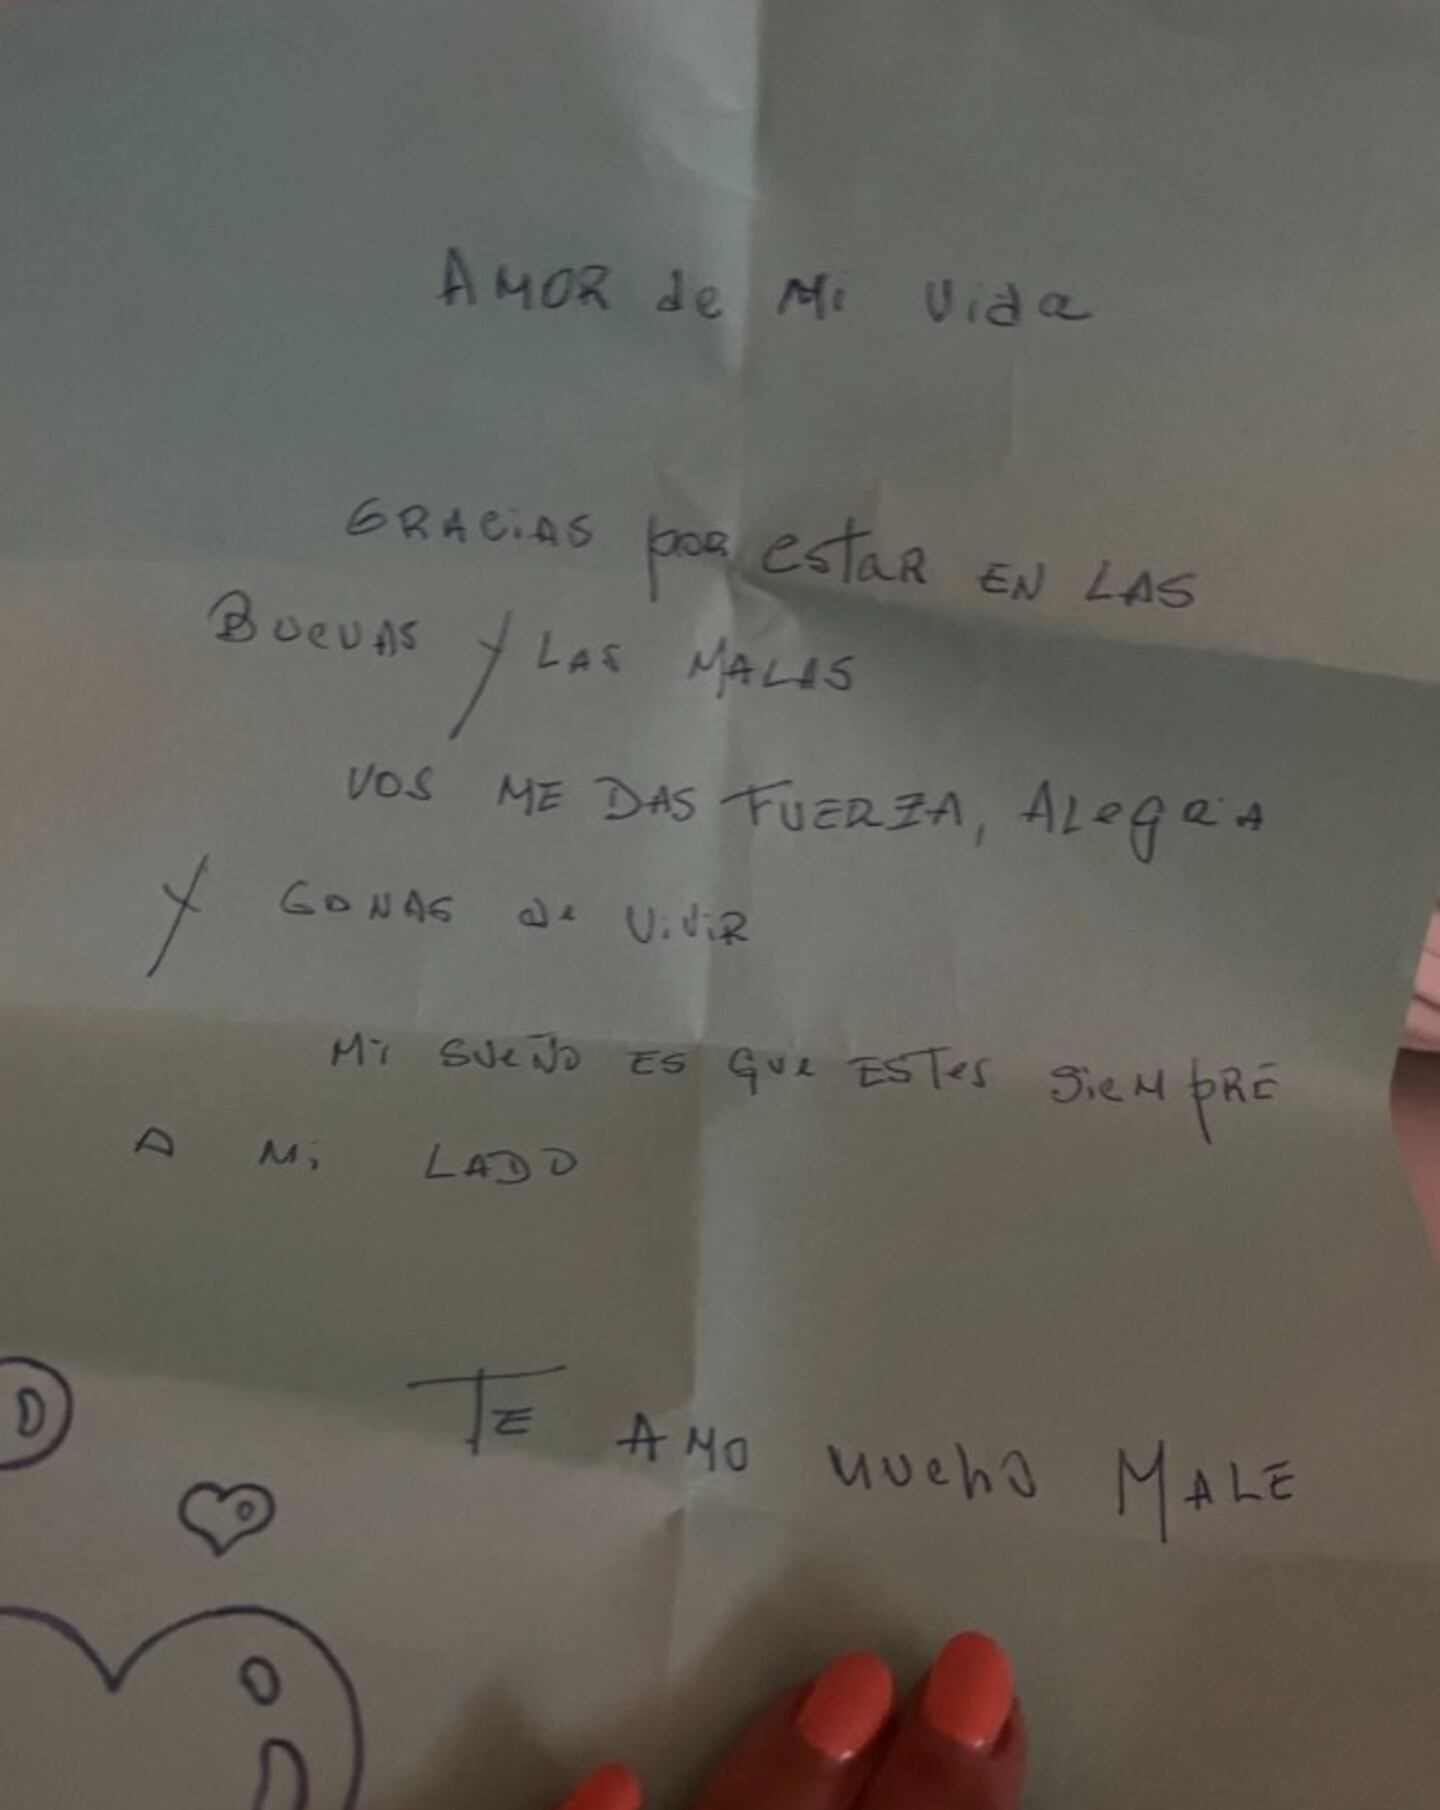 AMOR de Mi Vida
GRACiAS por estaR EN LAS
BUeNAS Y LAS MALAS
VOS ME DAS FUERZA, ALegRiA
Y GANAS de ViViR
Mi SUeÑO ES QUe ESTes SieMpRE
A Mi LADO
TE AMO MUchO MALE